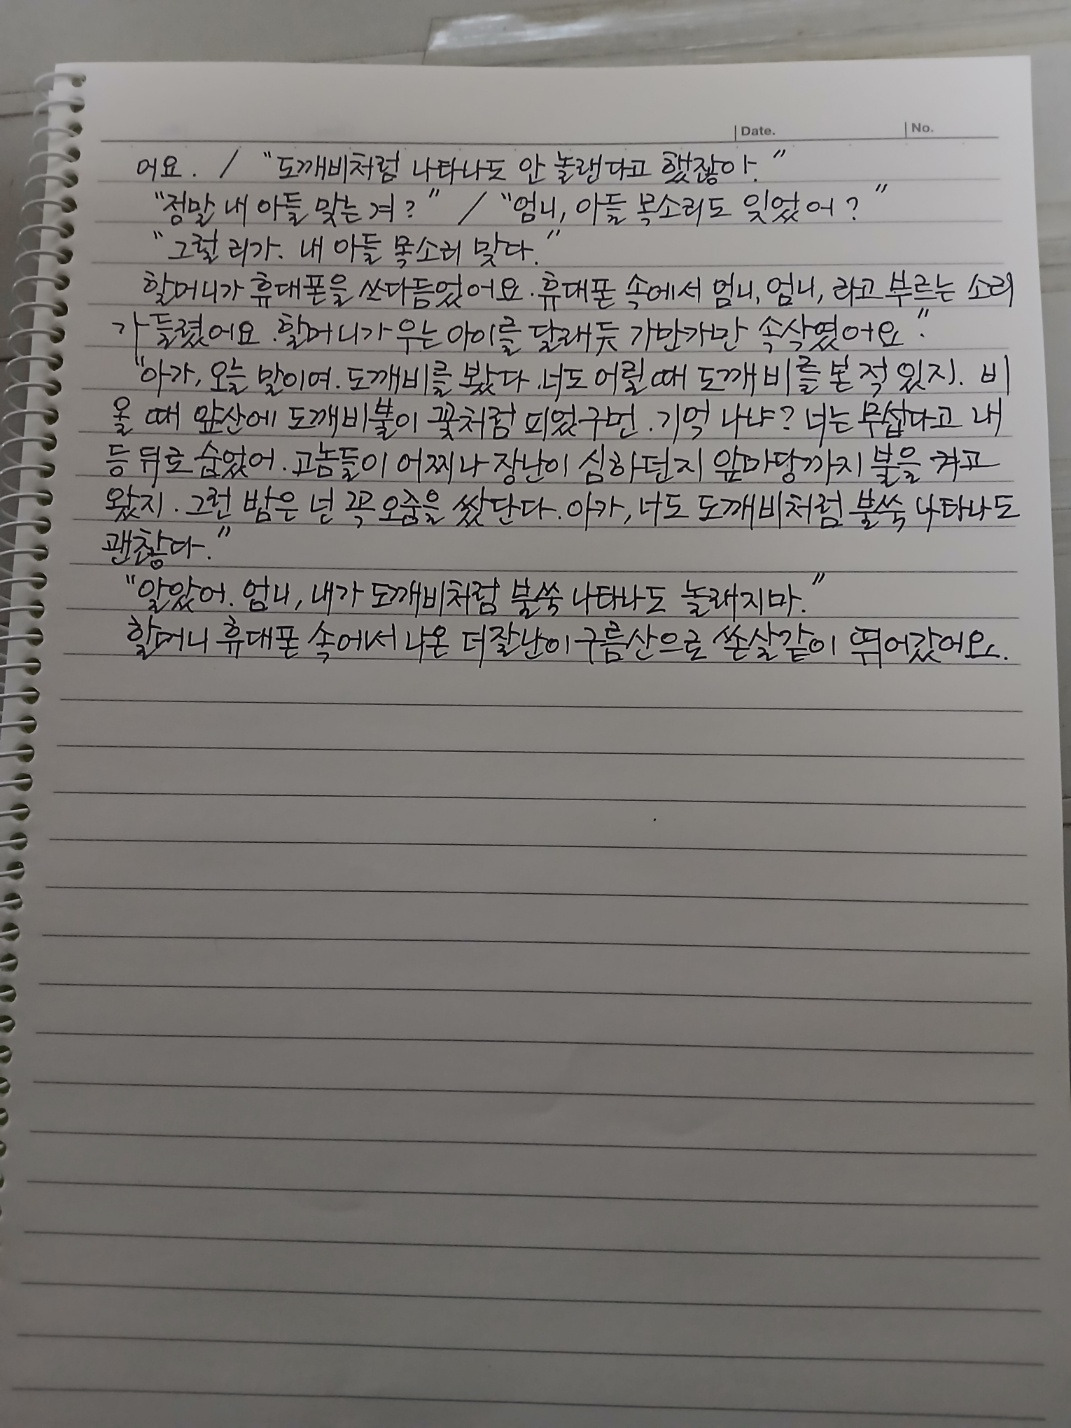 Date. No.
어요. / "도깨비처럼 나타나도 안 놀랜다고 했잖아."
"정말 내 아들 맞는겨?" / "엄니, 아들 목소리도 잊었어?"
"그럴 리가. 내 아들 목소리 맞다."
할머니가 휴대폰을 쓰다듬었어요. 휴대폰 속에서 엄니, 엄니, 라고 부르는 소리
가 들렸어요. 할머니가 우는 아이를 달래듯 가만가만 속삭였어요."
"아가, 오늘 말이여. 도깨비를 봤다. 너도 어릴 때 도깨비를 본 적 있지. 비
올 때 앞산에 도깨비불이 꽃처럼 피었구먼. 기억 나냐? 너는 무섭다고 내
등 뒤로 숨었어. 고놈들이 어찌나 장난이 심하던지 앞마당까지 불을 켜고
왔지. 그런 밤은 넌 꼭 오줌을 쌌단다. 아가, 너도 도깨비처럼 불쑥 나타나도
괜찮다."
"알았어. 엄니, 내가 도깨비처럼 불쑥 나타나도 놀래지마."
할머니 휴대폰 속에서 나온 더잘난이 구름산으로 쏜살같이 뛰어갔어요.